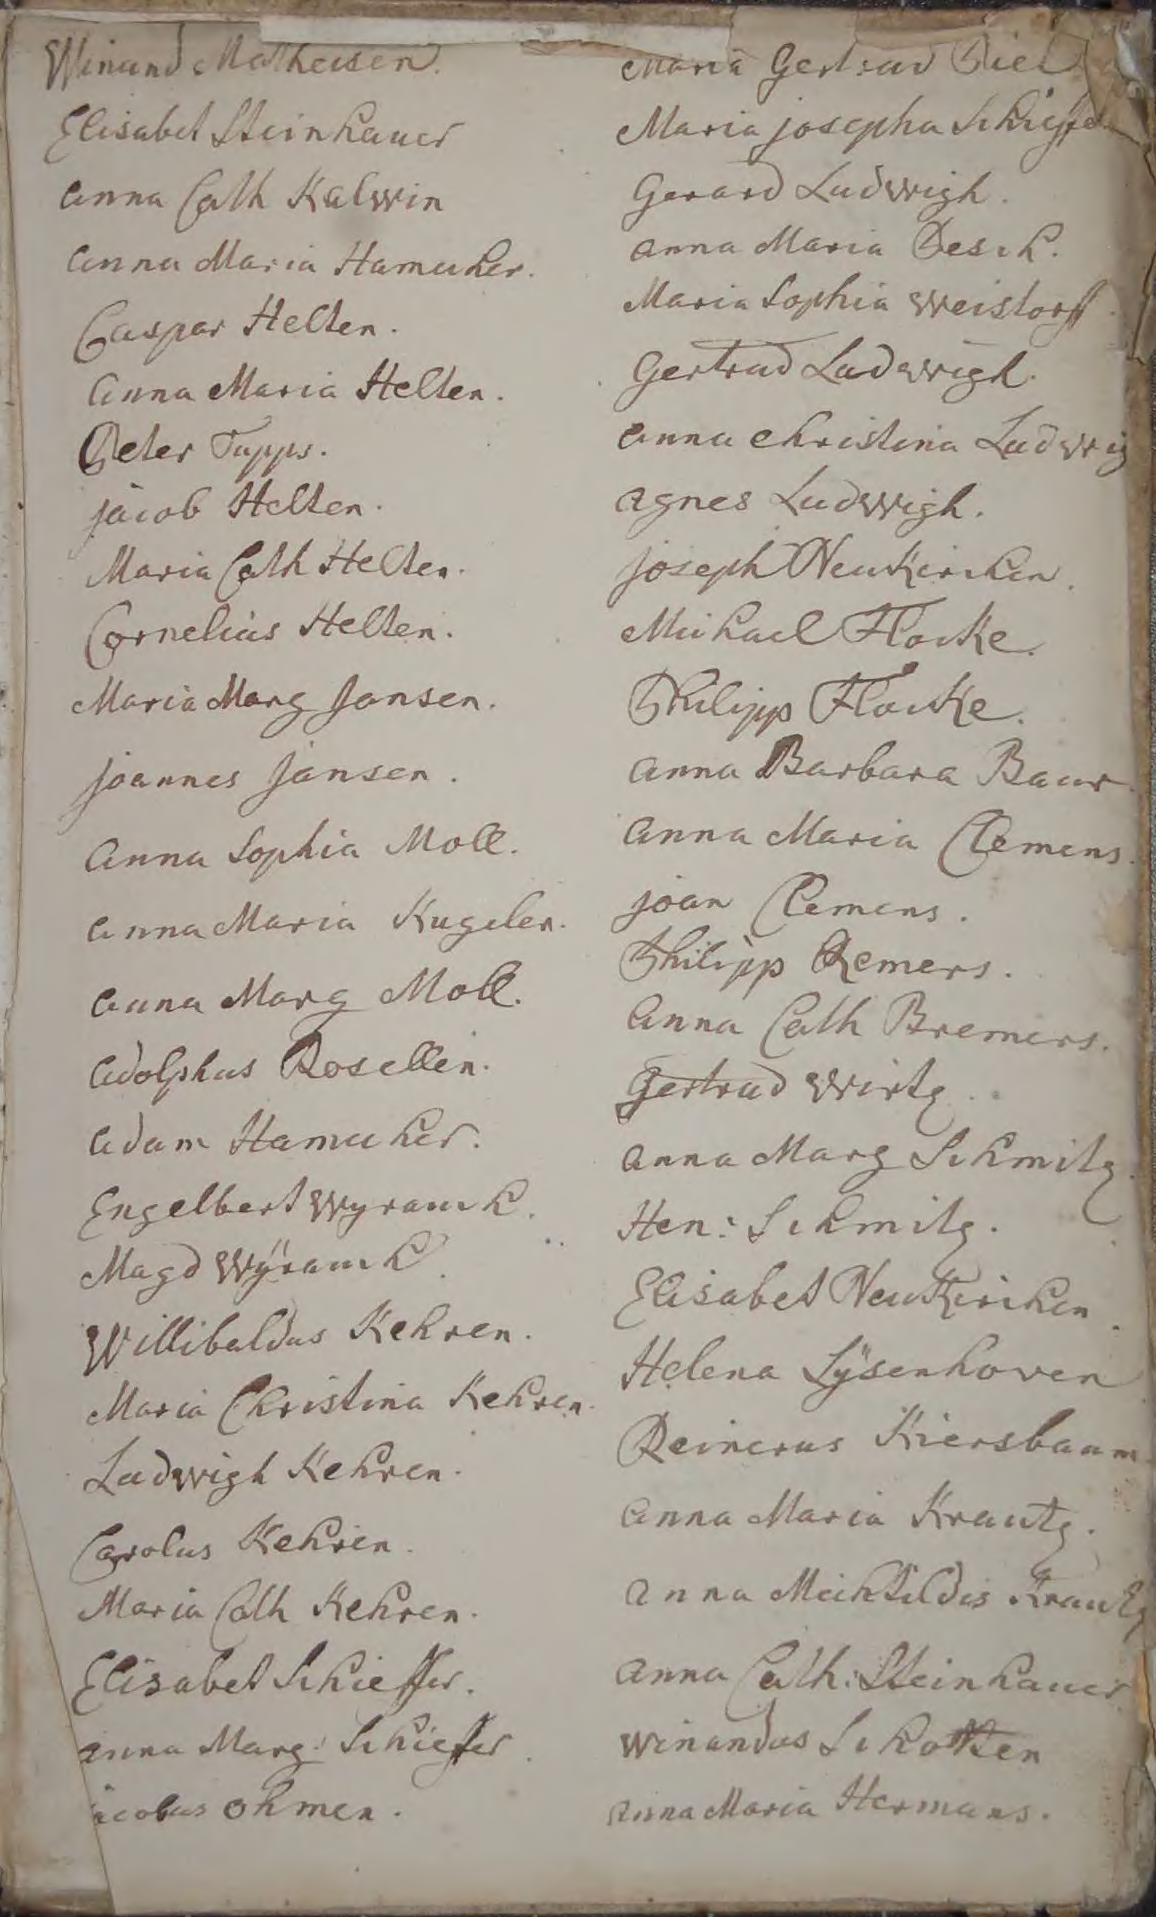 Winand Matheisen.
Elisabet Steinhauer
Anna Cath Kalwin
Anna Maria Hamacher.
Caspar Helten.
Anna Maria Helten.
Peter Tupps.
jacob Helten.
Maria Cath Helten.
Cornelius Helten.
Maria Marg Jansen.
joannes Jansen.
Anna Sophia Moll.
Anna Maria Kugelen.
Anna Marg Moll.
Adolphus Rosellen.
Adam Hamacher.
Engelbert Wyrauch.
Magd Wÿrauch.
Willibaldus Kehren.
Maria Christina Kehren.
Ludwigh Kehren.
Carolus Kehren.
Maria Cath Kehren.
Elisabet Schieffer.
Anna Marg: Schieffer.
jacobus Ohmen.
Maria Gertrud
Maria josepha Schieffe
Gerard Ludwigh.
Anna Maria Desch.
Maria Sophia Weistorff.
Gertrud Ludwigh.
Anna Christina Ludwig
Agnes Ludwigh.
joseph Neukirchen.
Michael Flocke.
Philipp Flocke.
Anna Barbara Baur.
Anna Maria Clemens.
joan Clemens.
Philipp Remers.
Anna Cath Bremers.
Gertrud Wirtz.
Anna Marg Schmitz.
Hen: Schmitz.
Elisabet Neukirchen.
Helena Lÿsenhoven
Reinerus Kiersbaum
Anna Maria Krautz.
Anna Mechtildis Krautz
Anna Cath: Steinhauer
Winandus Schotten
Anna Maria Hermans.